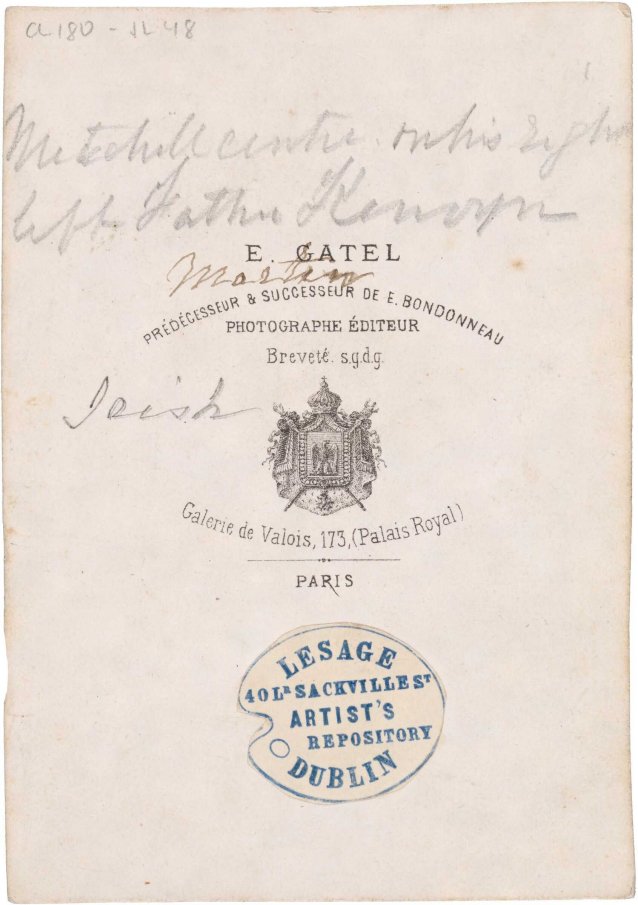 a 180 - JL 48
Mitchell centre. on his right
left Father Kenoyn
E. GATEL
Martin
PRÉDÉCESSEUR & SUCCESSEUR DE E. BONDONNEAU
PHOTOGRAPHE ÉDITEUR
Breveté. s.g.d.g.
Irish
Galerie de Valois, 173, (Palais Royal)
PARIS
LESAGE
40 LR SACKVILLE ST
ARTIST'S
REPOSITORY
DUBLIN